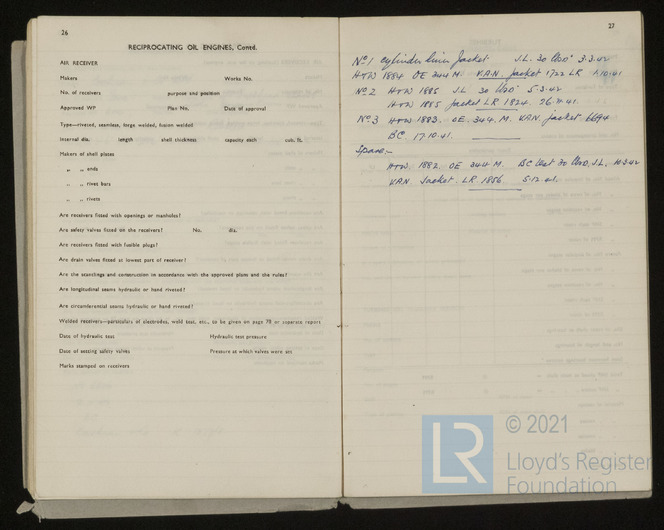 26
RECIPROCATING OIL ENGINES, Contd.
AIR RECEIVER
Makers Works No.
No. of receivers purpose and position
Approved WP Plan No. Date of approval
Type—riveted, seamless, forge welded, fusion welded
Internal dia. length shell thickness capacity each cub. ft.
Makers of shell plates
„ „ ends
„ „ rivet bars
„ „ rivets
Are receivers fitted with openings or manholes?
Are safety valves fitted on the receivers? No. dia.
Are receivers fitted with fusible plugs?
Are drain valves fitted at lowest part of receiver?
Are the scantlings and construction in accordance with the approved plans and the rules?
Are longitudinal seams hydraulic or hand riveted?
Are circumferential seams hydraulic or hand riveted?
Welded receivers—particulars of electrodes, weld test, etc., to be given on page 70 or separate report
Date of hydraulic test Hydraulic test pressure
Date of setting safety valves Pressure at which valves were set
Marks stamped on receivers
27
No 1 cylinder liner Jacket J.L. 30 3.3.42
HTW 1884 OE 344 M. V.A.N. Jacket 1722 LR 1.10.41
No 2 HTW 1885 JL 30 5.3.42
HTW 1885 Jacket LR 1824. 26.11.41.
No 3 HTW 1883. OE. 344. M. VAN. Jacket 6694
BC 17.10.41.
Spare,-
HTW. 1882. OE 344 M. BC 30 J.L,
VAN. Jacket. LR. 1856. 5.12.41.
© 2021
LR
Lloyd's Register
Foundation